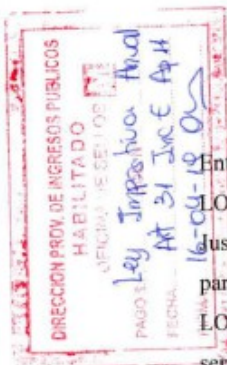 DIRECCIÓN PROV. DE INGRESOS PUBLICOS
HABILITADO
OFICINA DE SELLOS
Ley Impositiva Anual
PAGO
Art 31 Inc E Ap H
FECHA
16-04-18
Ent
LO
Jus
par
LO
ser